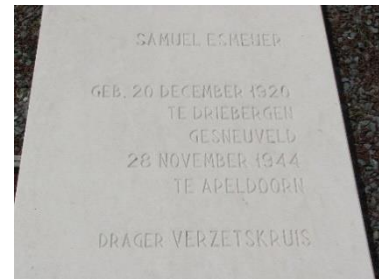 SAMUEL ESMEIJER
GEB. 20 DECEMBER 1920
TE DRIEBERGEN
GESNEUVELD
28 NOVEMBER 1944
TE APELDOORN
DRAGER VERZETSKRUIS